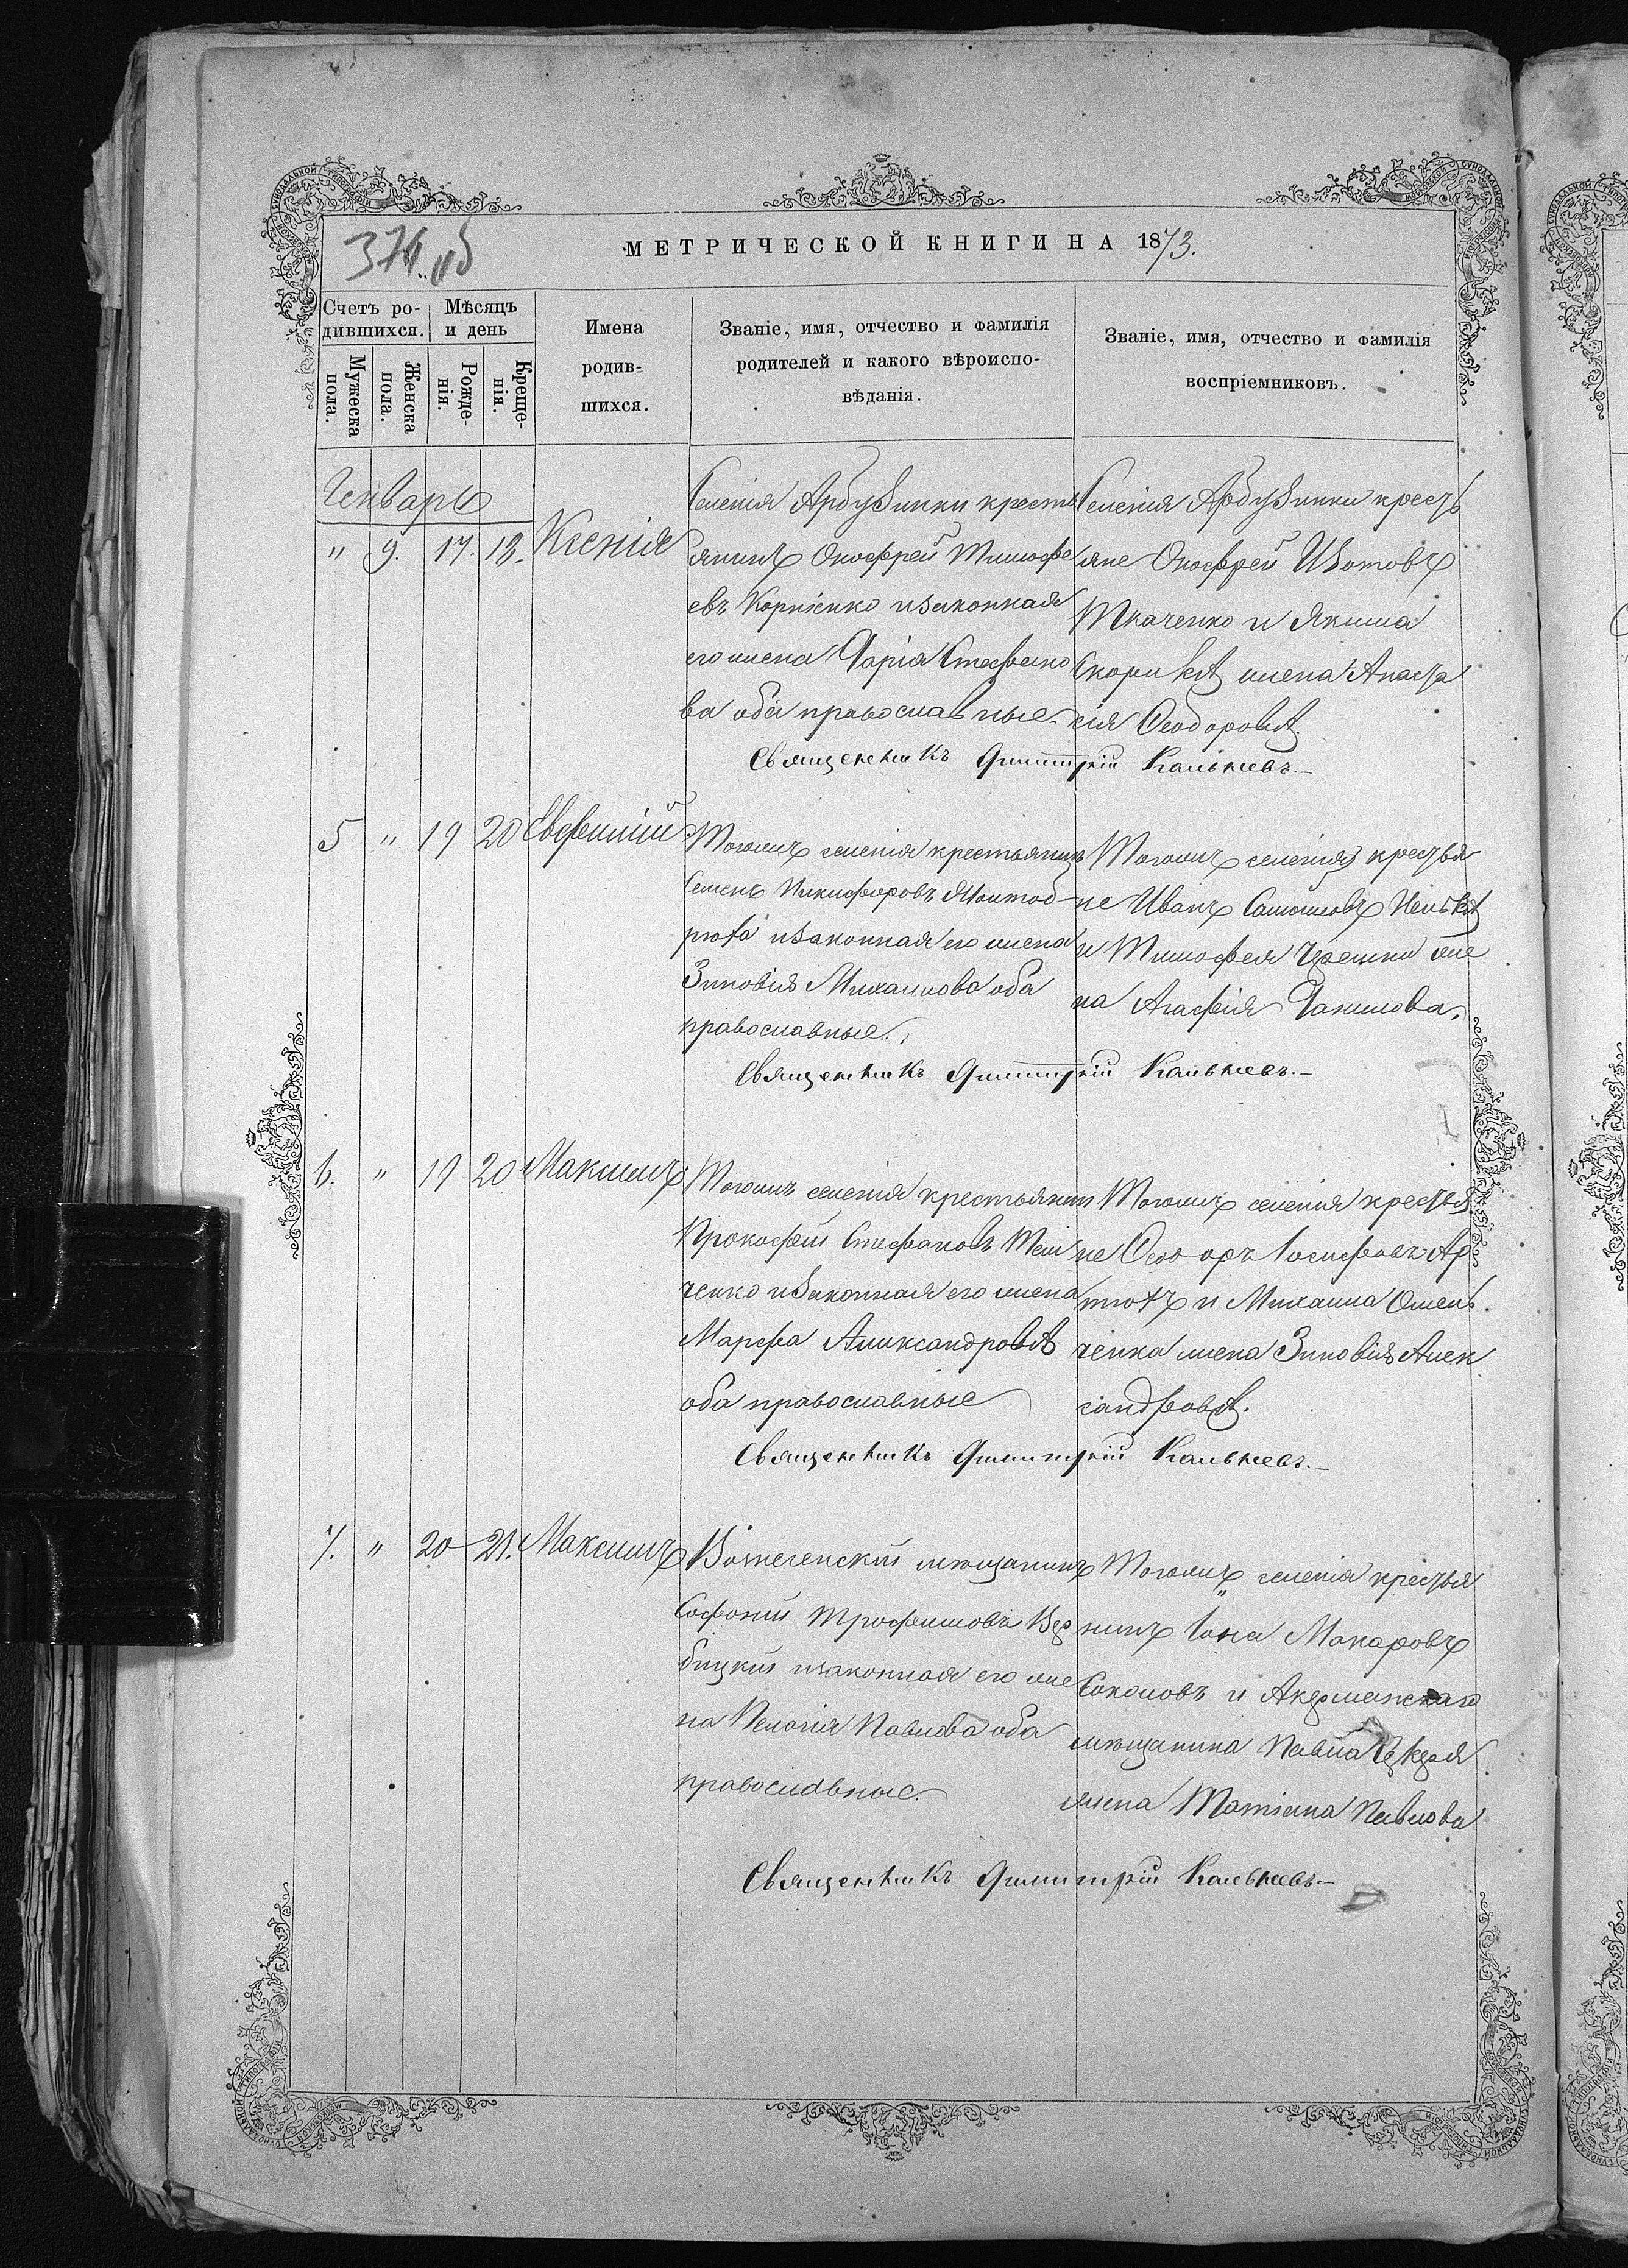 374 об
МЕТРИЧЕСКОЙ КНИГИ НА 1873.
Счетъ ро-
дившихся.
Мѣсяцъ
и день
Мужеска
пола.
Женска
пола.
Рожде-
нія.
Креще-
нія.
Имена
родив-
шихся.
Званіе, имя, отчество и фамилія
родителей и какого вѣроиспо-
вѣданія.
Званіе, имя, отчество и фамилія
воспріемниковъ.
Генварь
" 9. 17. 18. Ксенія
Селенія Арбузинки кресть
янинъ Онофрей Тимофе
евъ Корніенко и законная
его жена Дарія Стефано
ва оба православные.
Селенія Арбузинки кресть
яне Онофрей Изотовъ
Ткаченко и Якима
жена Анаста
сія Ѳеодорова.
Священникъ Димитрій
5 " 19 20 Евфимій
Тогожъ селенія крестьянинъ
Семенъ Никифоровъ
и законная его жена
Зиновія Михаилова оба
православные.
Тогожъ селенія крестья
не Иванъ
и Тимофея же
на Агафія Данилова.
Священникъ Димитрій
6. " 19 20 Максимъ
Тогожъ селенія крестьянинъ
Прокофій Стефановъ
ченко и законная его жена
Марфа Александрова
оба православные
Тогожъ селенія крестья
не Ѳеодоръ Іосифовъ
и Михаила Омель
ченка жена Зиновія Алек
сандрова.
Священникъ Димитрій
7. " 20 21. Максимъ
мѣщанинъ
Софоній Трофимовъ Вер
бицкій и законная его же
на Пелагія Павлова оба
православные.
Тогожъ селенія крестья
нинъ Іона Макаровъ
Соколовъ и Акерманскаго
мѣщанина Павла
жена Татіана Павлова
Священникъ Димитрій